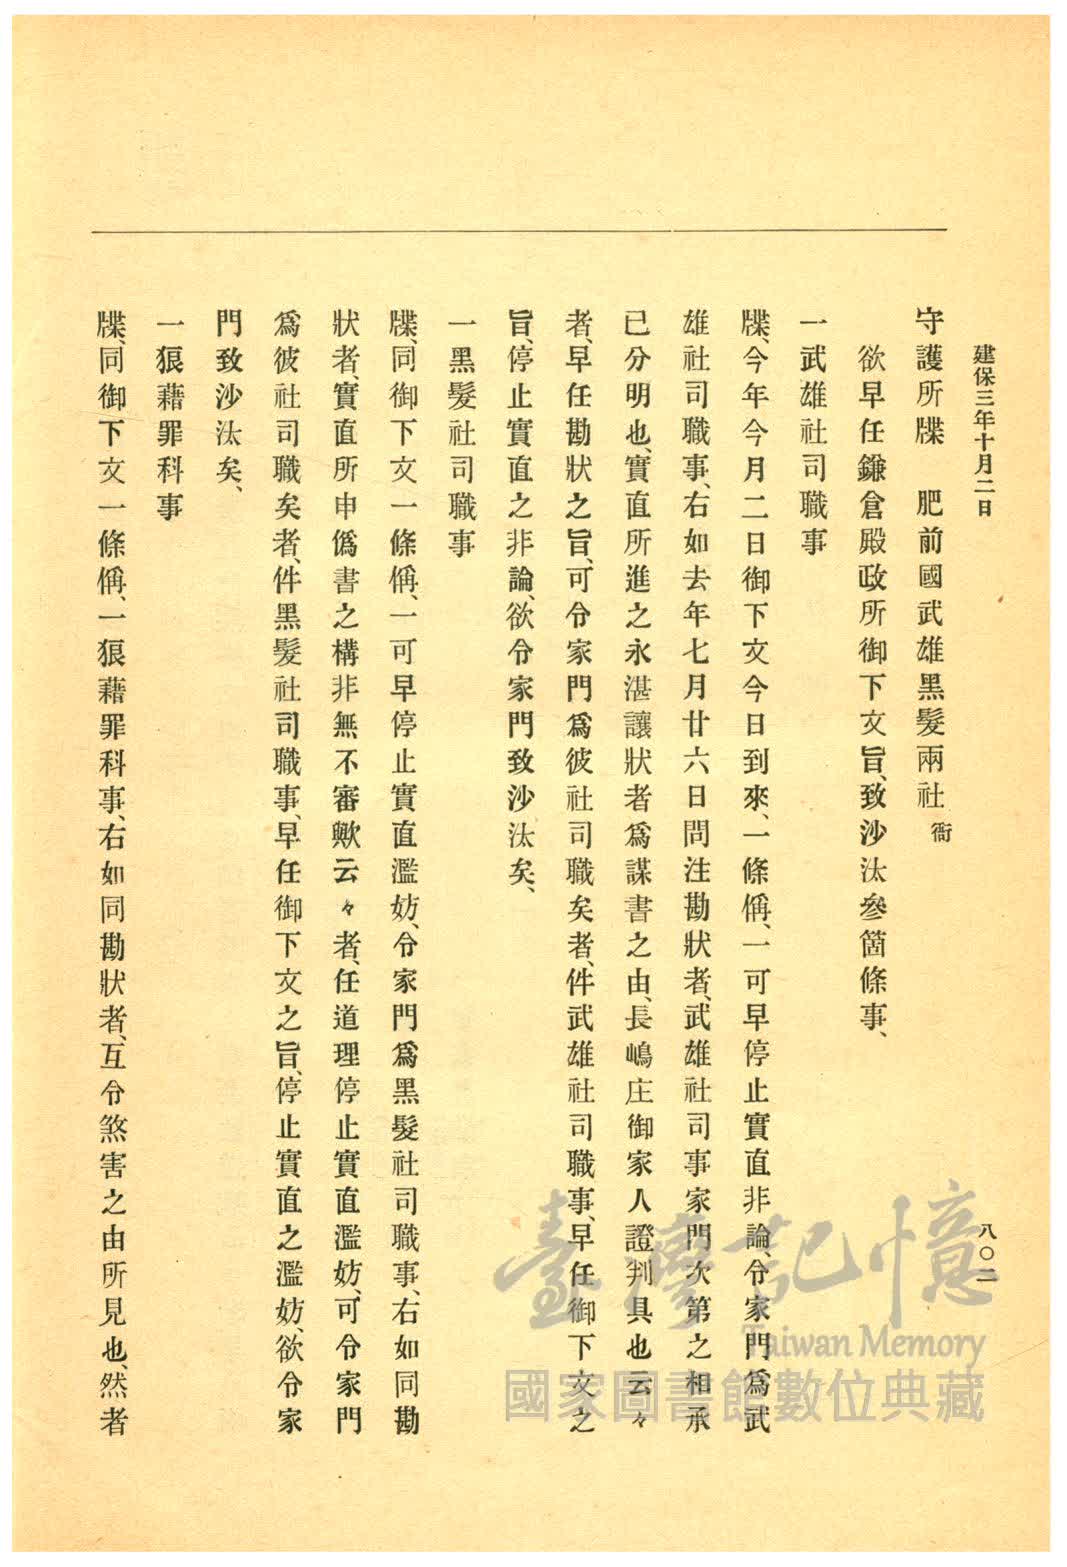 建保三年十月二日
八〇二
守護所牒　肥前國武雄黑髮兩社　衙
欲早任鎌倉殿政所御下文旨、致沙汰參箇條事、
一武雄社司職事
牒、今年今月二日御下文今日到來、一條偁、一可早停止實直非論、令家門爲武
雄社司職事、右如去年七月廿六日問注勘狀者、武雄社司事家門次第之相承
已分明也、實直所進之永湛讓狀者爲謀書之由、長嶋庄御家人證判具也云々
者、早任勘狀之旨、可令家門爲彼社司職矣者、件武雄社司職事、早任御下文之
旨、停止實直之非論、欲令家門致沙汰矣、
一黑髮社司職事
牒、同御下文一條偁、一可早停止實直濫妨、令家門爲黑髮社司職事、右如同勘
狀者、實直所申僞書之構非無不審歟云々者、任道理停止實直濫妨、可令家門
爲彼社司職矣者、件黑髮社司職事、早任御下文之旨、停止實直之濫妨、欲令家
門致沙汰矣、
一狼藉罪科事
牒、同御下文一條偁、一狼藉罪科事、右如同勘狀者、互令煞害之由所見也、然者
臺灣記憶
Taiwan Memory
國家圖書館數位典藏